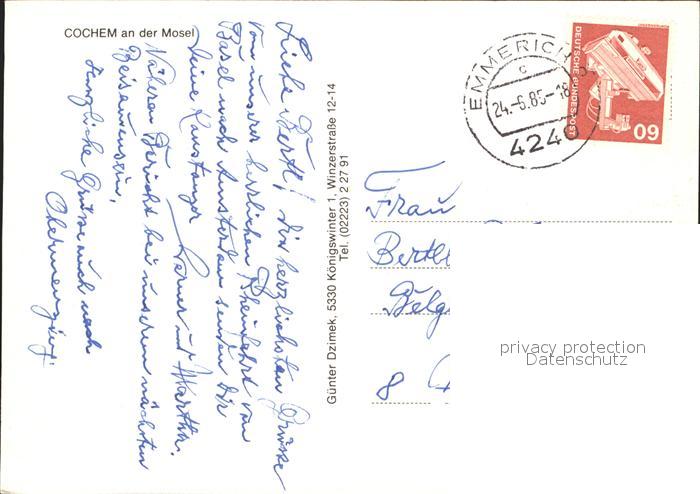 COCHEM an der Mosel
Liebe Bertl! die herzlichsten Grüsse
von unserer herrlichen Rheinfahrt von
Basel nach Amsterdam senden dir
deine Werner und Martha.
Näheren Bericht bei unserem nächsten
Beisammensein.
Herzliche Grüsse auch nach
Obermenzing.
Günter Dzimek, 5330 Königswinter 1, Winzerstraße 12-14
Tel. (02223) 2 27 91
EMMERICH
c
24.-6.85-18
4240
DEUTSCHE BUNDESPOST
60
Frau
Bertl
Belg
8
privacy protection
Datenschutz